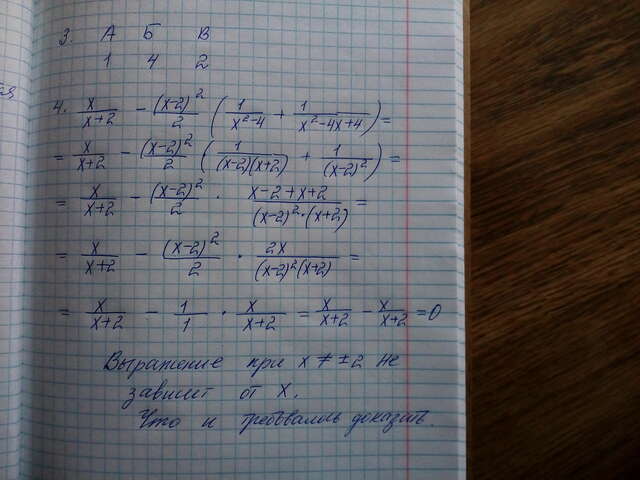 3. А Б В
1 4 2
4. x/(x+2) - (x-2)²/2 (1/(x²-4) + 1/(x²-4x+4)) =
= x/(x+2) - (x-2)²/2 (1/((x-2)(x+2)) + 1/(x-2)²) =
= x/(x+2) - (x-2)²/2 · (x-2+x+2)/((x-2)²·(x+2)) =
= x/(x+2) - (x-2)²/2 · 2x/((x-2)²(x+2)) =
= x/(x+2) - 1/1 · x/(x+2) = x/(x+2) - x/(x+2) = 0
Выражение при x ≠ ±2 не
зависит от X.
Что и требовалось доказать.